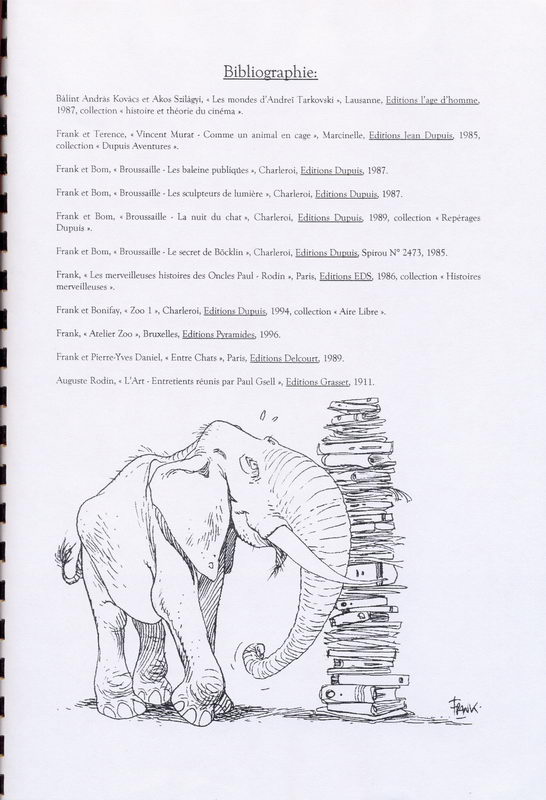 Bibliographie:
Bálint András Kovács et Akos Szilàgyi, « Les mondes d'Andreï Tarkovski », Lausanne, Editions l'age d'homme,
1987, collection « histoire et théorie du cinéma ».
Frank et Terence, « Vincent Murat - Comme un animal en cage », Marcinelle, Editions Jean Dupuis, 1985,
collection « Dupuis Aventures ».
Frank et Bom, « Broussaille - Les baleine publiques », Charleroi, Editions Dupuis, 1987.
Frank et Bom, « Broussaille - Les sculpteurs de lumière », Charleroi, Editions Dupuis, 1987.
Frank et Bom, « Broussaille - La nuit du chat », Charleroi, Editions Dupuis, 1989, collection « Repérages
Dupuis ».
Frank et Bom, « Broussaille - Le secret de Böcklin », Charleroi, Editions Dupuis, Spirou N° 2473, 1985.
Frank, « Les merveilleuses histoires des Oncles Paul - Rodin », Paris, Editions EDS, 1986, collection « Histoires
merveilleuses ».
Frank et Bonifay, « Zoo 1 », Charleroi, Editions Dupuis, 1994, collection « Aire Libre ».
Frank, « Atelier Zoo », Bruxelles, Editions Pyramides, 1996.
Frank et Pierre-Yves Daniel, « Entre Chats », Paris, Editions Delcourt, 1989.
Auguste Rodin, « L'Art - Entretients réunis par Paul Gsell », Editions Grasset, 1911.
FRANK.